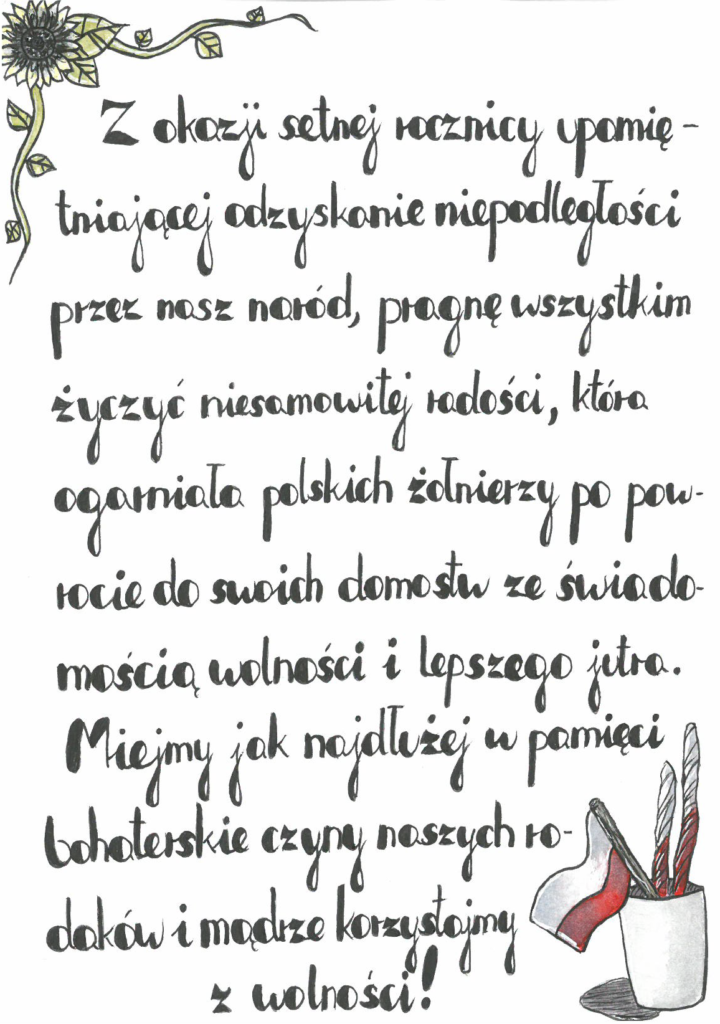 Z okazji setnej rocznicy upomię-
tniającej odzyskanie niepodległości
przez nasz naród, pragnę wszystkim
życzyć niesamowitej radości, która
ogarniała polskich żołnierzy po pow-
rocie do swoich domostw ze świado-
mością wolności i lepszego jutra.
Miejmy jak najdłużej w pamięci
bohaterskie czyny naszych ro-
daków i mądrze korzystajmy
z wolności!